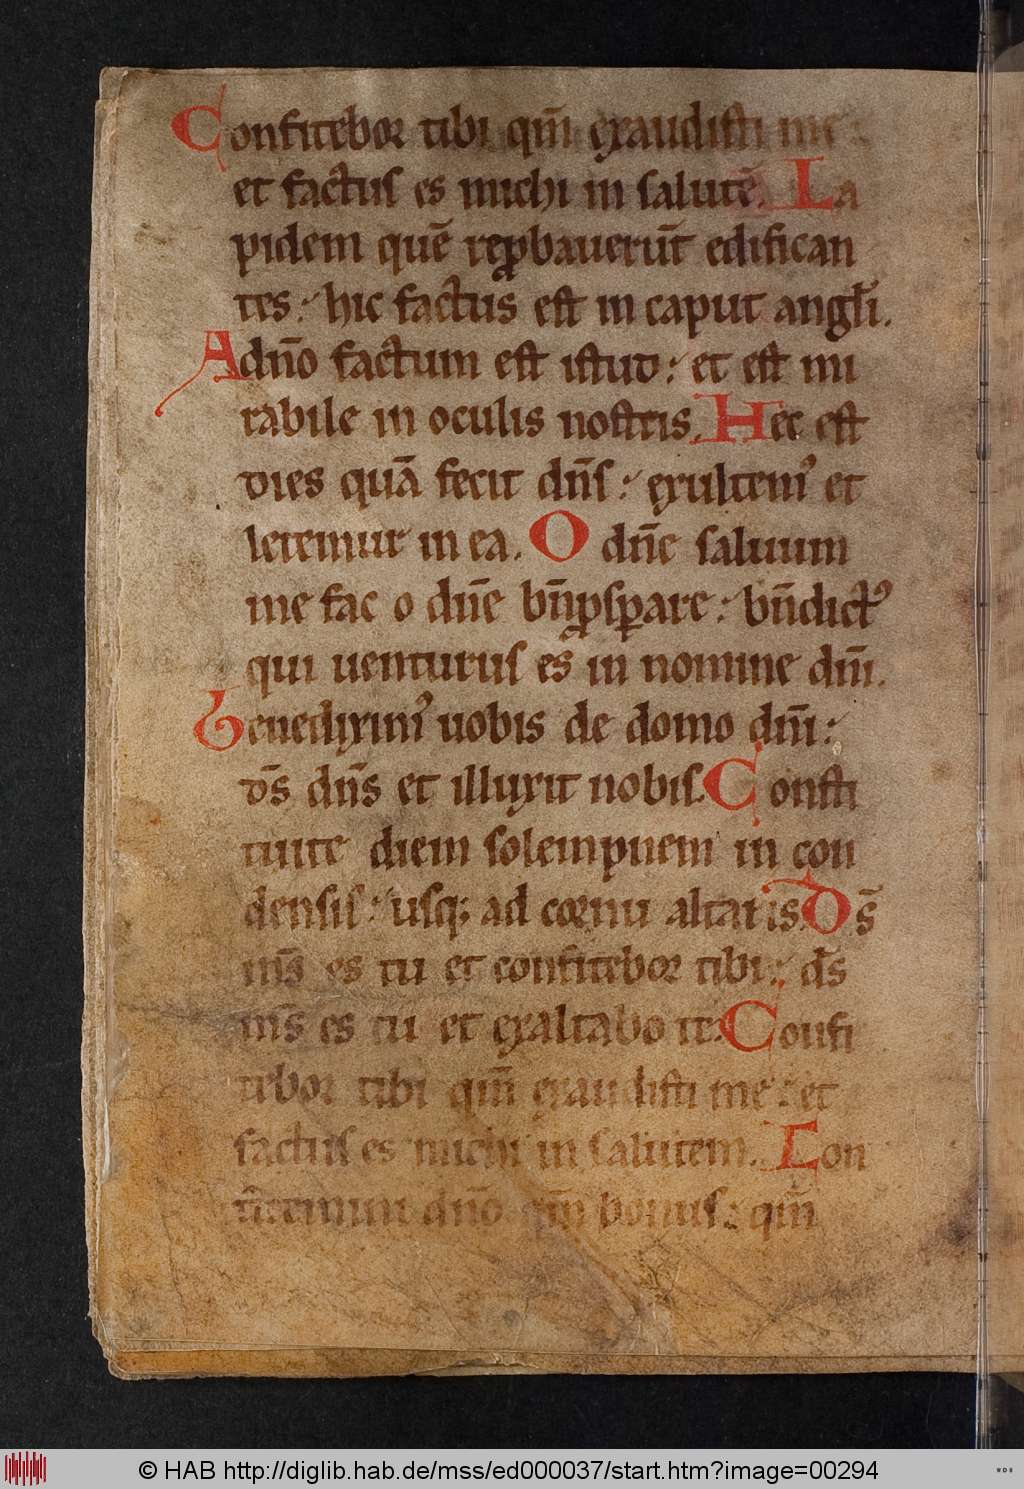 Confitebor tibi qm̄ exaudisti me :
et factus es michi in salutē. La
pidem quē reꝓbauerūt edifican
tes : hic factus est in caput angl̄i.
A dn̄o factum est istud : et est mi
rabile in oculis nostris. Hec est
dies quā fecit dn̄s : exultemꝰ et
letemur in ea. O dn̄e saluum
me fac o dn̄e bn̄ꝓsꝑare : bn̄dictꝰ
qui uenturus es in nomine dn̄i.
Benediximꝰ uobis de domo dn̄i :
ds̄ dn̄s et illuxit nobis. Consti
tuite diem solempnem in con
densis : usqꝫ ad cornu altaris. Ds̄
ms̄ es tu et confitebor tibi : ds̄
ms̄ es tu et exaltabo te. Confi
tebor tibi qm̄ exaudisti me : et
factus es michi in salutem. Con
fitemini dn̄o qm̄ bonus : qm̄
© HAB http://diglib.hab.de/mss/ed000037/start.htm?image=00294